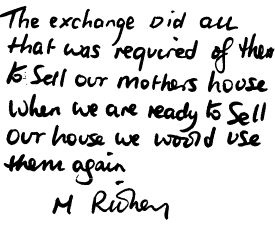 The exchange did all
that was required of them
to sell our mothers house
when we are ready to sell
our house we would use
them again
M